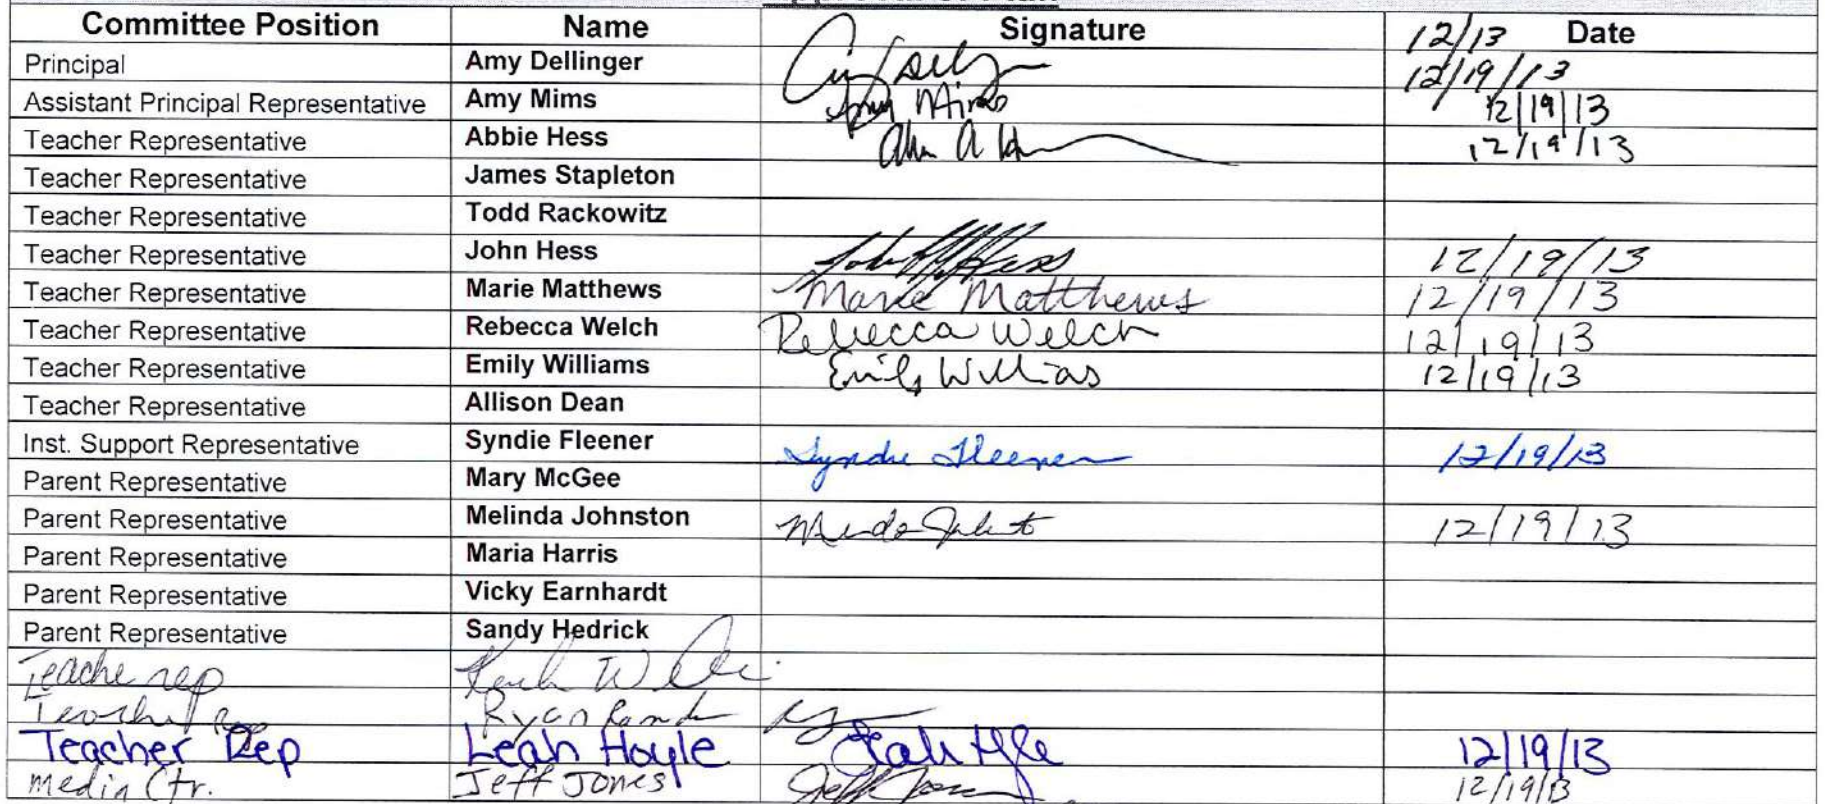 Committee Position Name Signature Date
12/13
Principal Amy Dellinger 12/19/13
Assistant Principal Representative Amy Mims Amy Mims 12/19/13
Teacher Representative Abbie Hess 12/19/13
Teacher Representative James Stapleton
Teacher Representative Todd Rackowitz
Teacher Representative John Hess John Hess 12/19/13
Teacher Representative Marie Matthews Marie Matthews 12/19/13
Teacher Representative Rebecca Welch Rebecca Welch 12/19/13
Teacher Representative Emily Williams Emily Willias 12/19/13
Teacher Representative Allison Dean
Inst. Support Representative Syndie Fleener Syndie Fleener 12/19/13
Parent Representative Mary McGee
Parent Representative Melinda Johnston 12/19/13
Parent Representative Maria Harris
Parent Representative Vicky Earnhardt
Parent Representative Sandy Hedrick
Teache rep
Ryan
Teacher Rep Leah Hoyle 12/19/13
Media Ctr. Jeff Jones 12/19/13